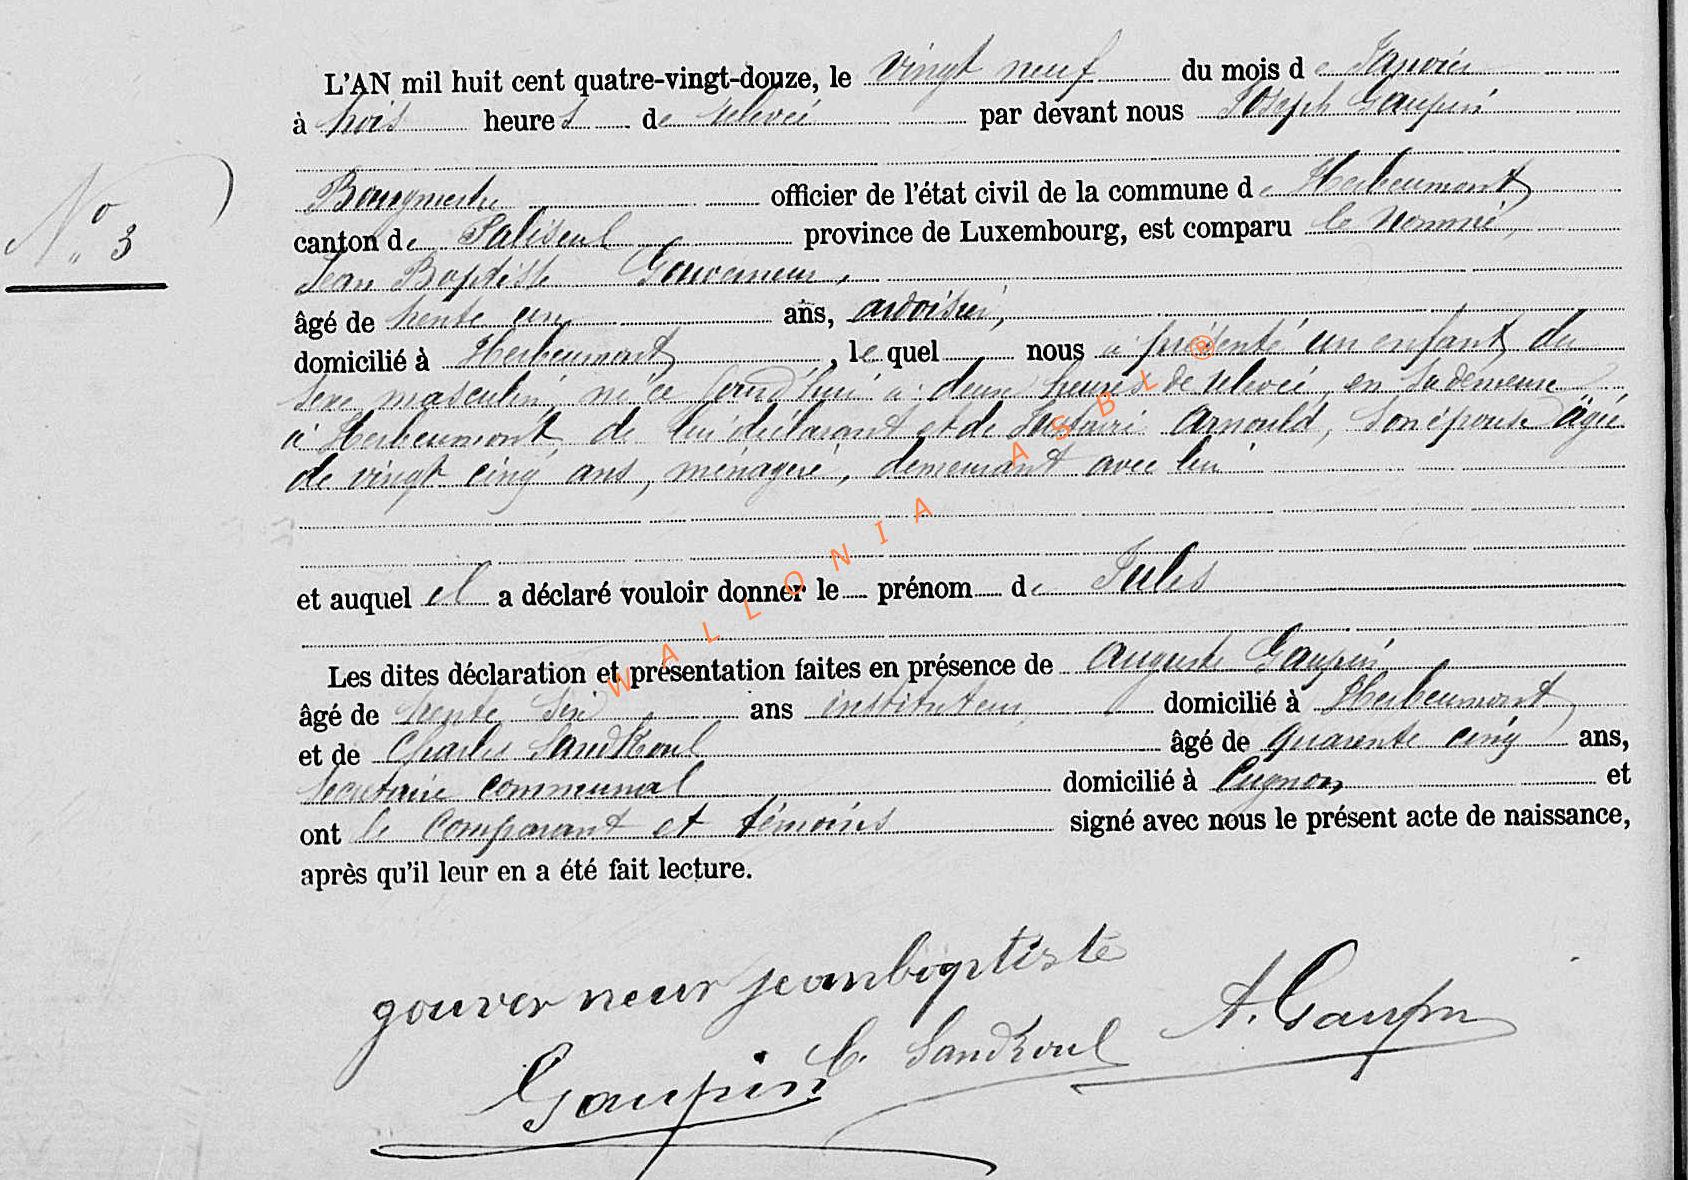 L'AN mil huit cent quatre-vingt-douze, le vingt neuf du mois de Janvier
à trois heures de relevée par devant nous Joseph Gaupin
Bourgmestre officier de l'état civil de la commune de Herbeumont
N° 3
canton de Paliseul province de Luxembourg, est comparu le nommé,
Jean Baptiste Gouverneur,
âgé de trente un ans, ardoisier,
domicilié à Herbeumont, lequel nous a présenté un enfant du
sexe masculin, né ce jourd'hui à deux heures de relevée, en sa demeure
à Herbeumont, de lui déclarant et de Arnould, son épouse âgée
de vingt cinq ans, ménagère, demeurant avec lui
et auquel il a déclaré vouloir donner le prénom de Jules
Les dites déclaration et présentation faites en présence de Auguste Gaupin
âgé de trente six ans instituteur domicilié à Herbeumont
et de Charles Sandkoul âgé de quarente cinq ans,
secrétaire communal domicilié à Cugnon et
ont le comparant et témoins signé avec nous le présent acte de naissance,
après qu'il leur en a été fait lecture.
gouverneur jeanbaptiste
A. Gaupin
C. Sandkoul
Gaupin
WALLONIA ASBL ®